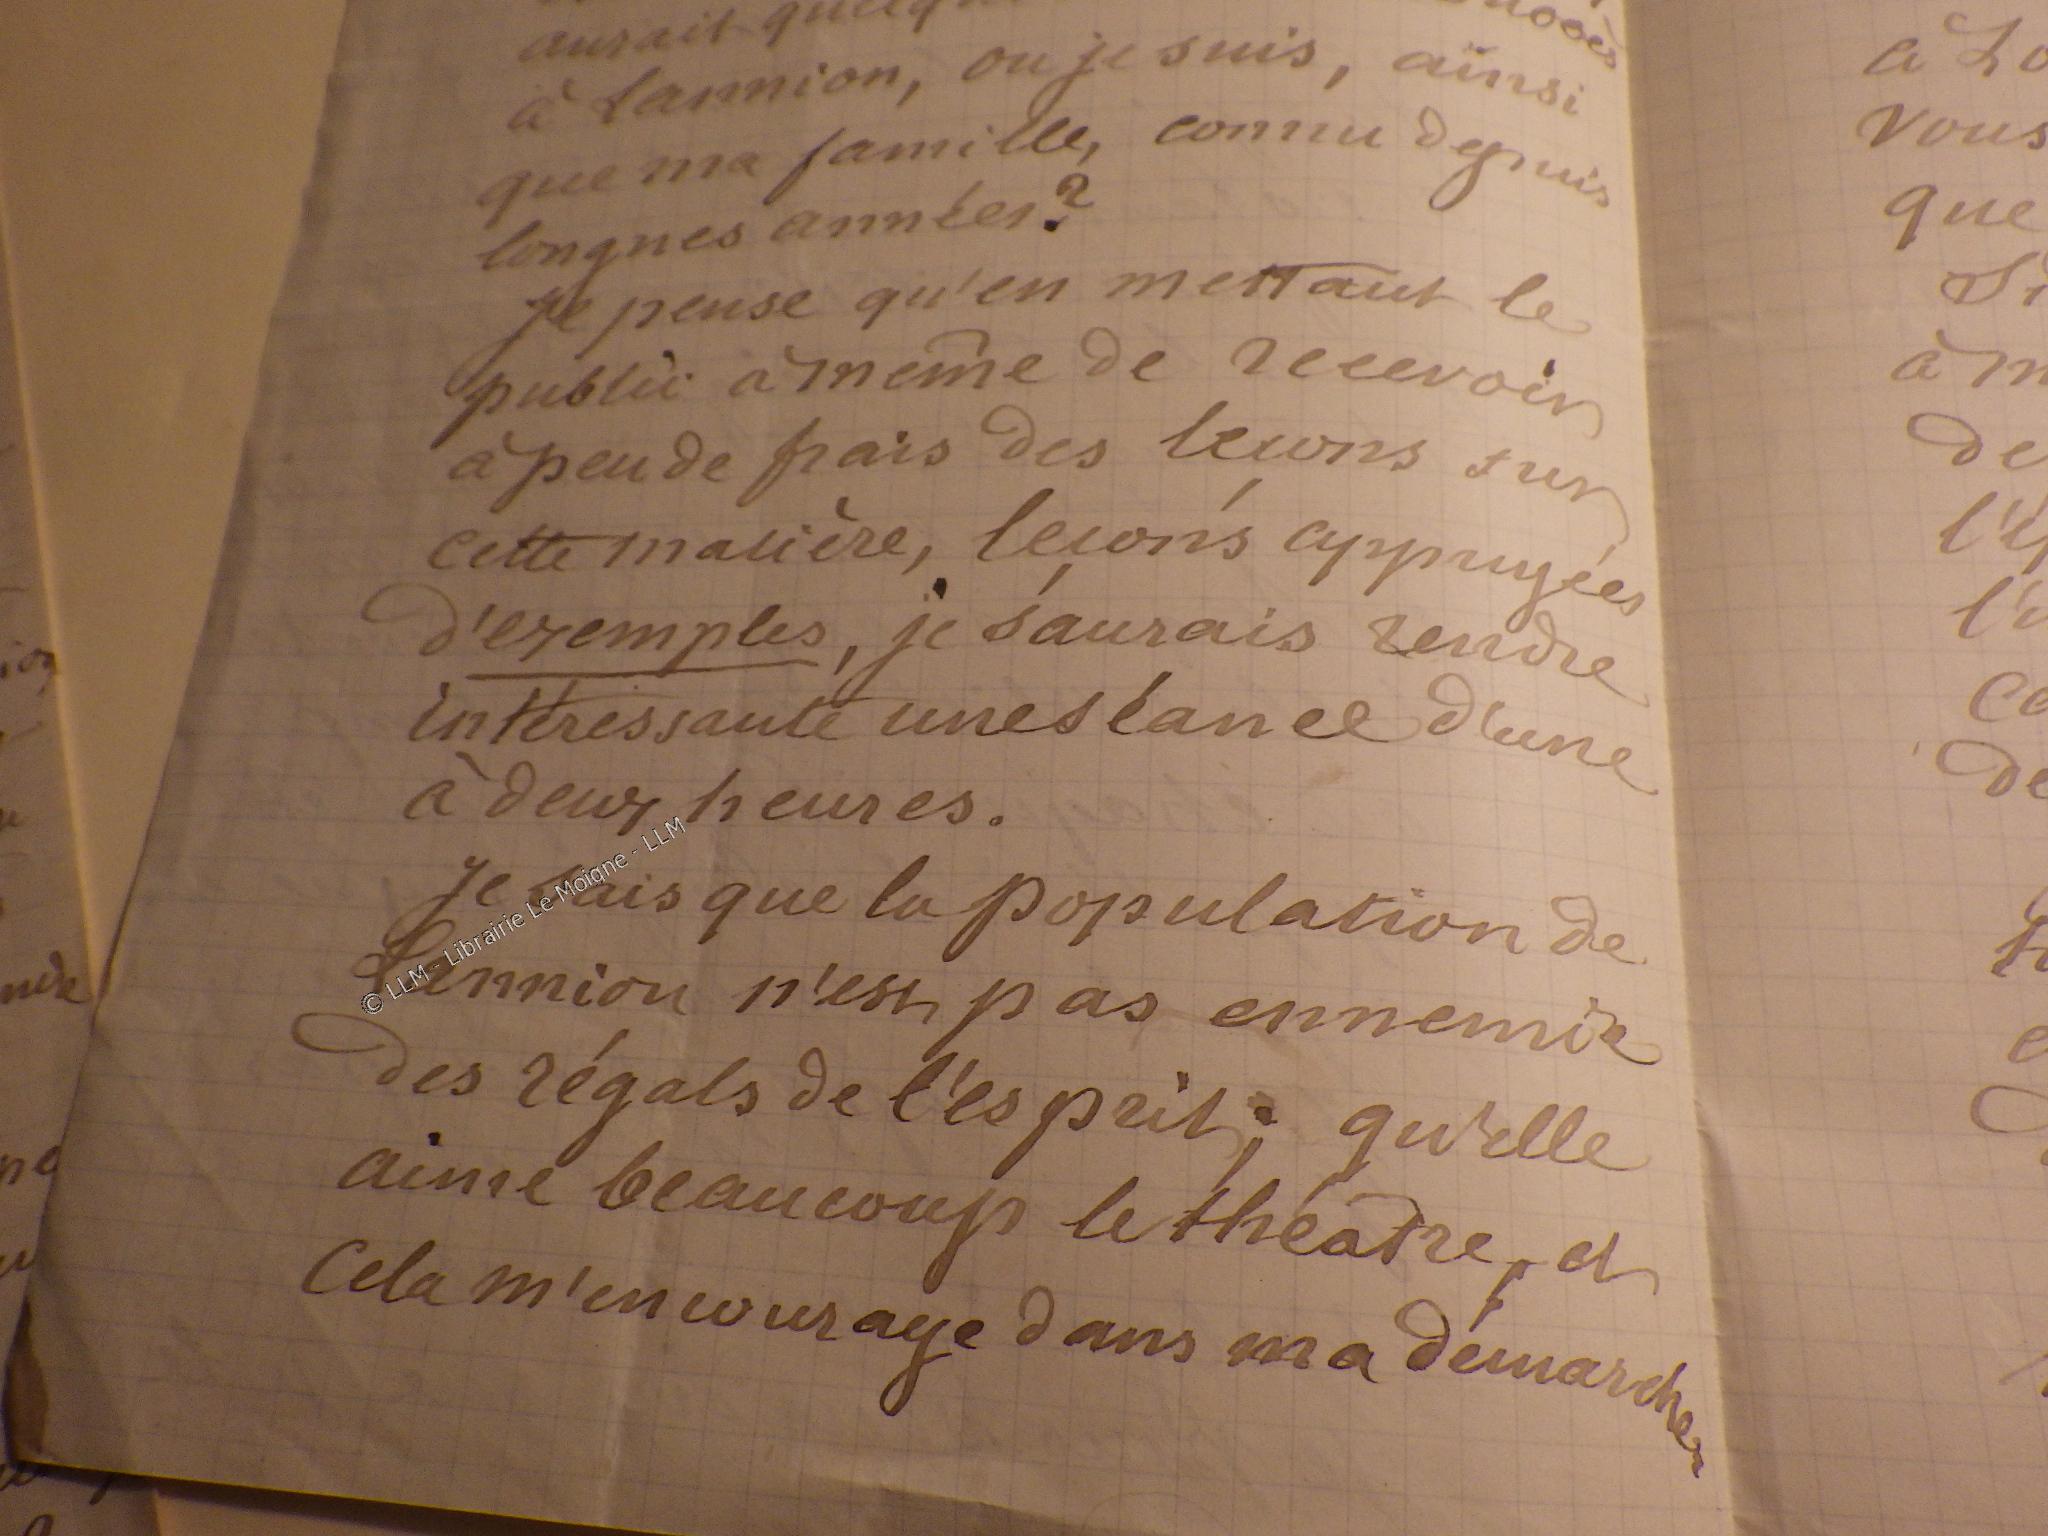 aurait
à Lannion, ou je suis, ainsi
que ma famille, connu depuis
longues années?
Je pense qu'en mettant le
public à même de recevoir
à peu de frais des leçons sur
cette matière, leçons appuyées
d'exemples, je saurais rendre
intéressante une séance d'une
à deux heures.
Je sais que la population de
Lannion n'est pas ennemie
des régals de l'esprit; qu'elle
aime beaucoup le théâtre, et
Cela m'encourage dans ma démarche
© LLM - Librairie Le Moigne - LLM
à
vous
que
à
de